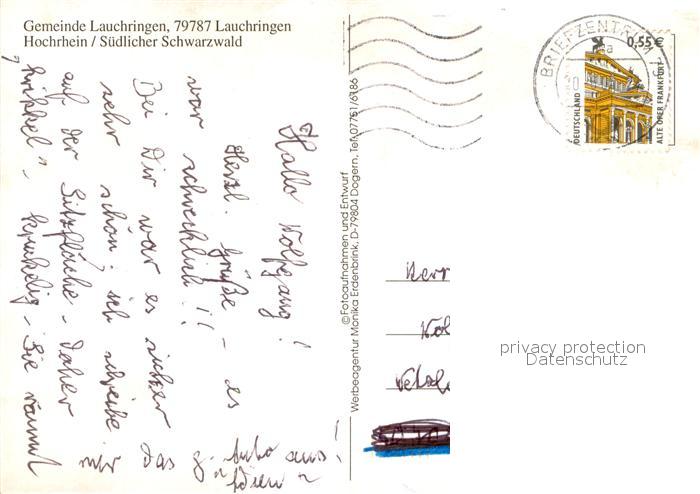 Gemeinde Lauchringen, 79787 Lauchringen
Hochrhein / Südlicher Schwarzwald
Hallo Wolfgang!
Herzl. Grüße - es
war schrecklich!!
Bei Dir war es sicher
sehr schön; ich schreibe
auf der Sitzfläche - daher
- Sie räumt
mir das g. Auto aus!
©Fotoaufnahmen und Entwurf
Werbeagentur Monika Erdenbrink, D-79804 Dogern, Tel. 07751/6186
BRIEFZENTRUM
0,55 €
DEUTSCHLAND
ALTE OPER FRANKFURT
Herr
privacy protection
Datenschutz